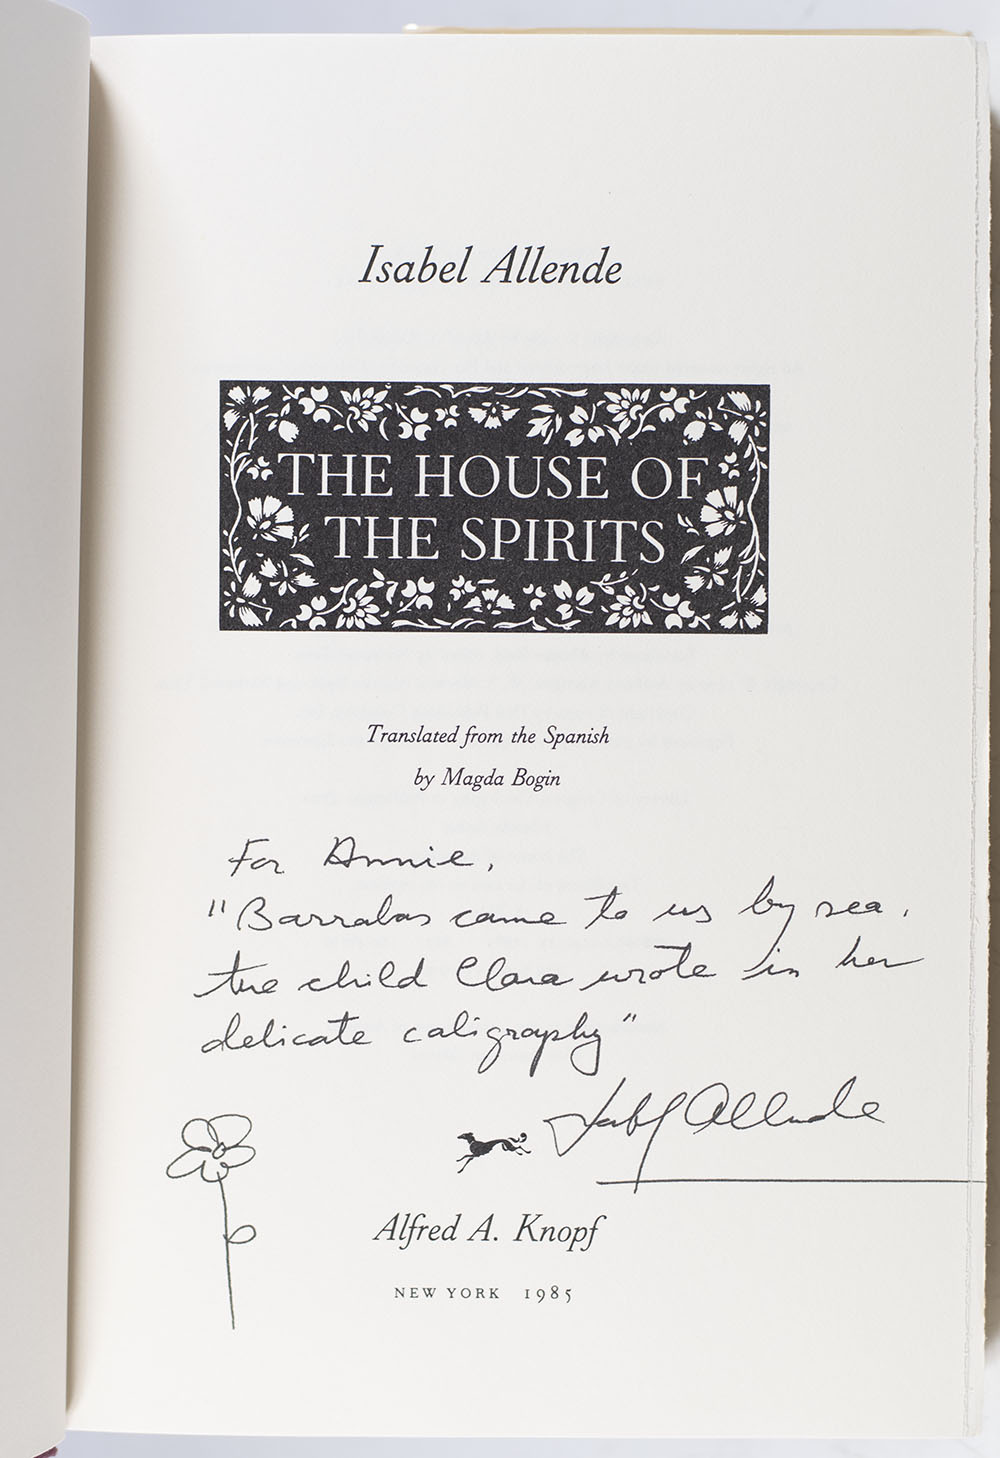 Isabel Allende
THE HOUSE OF
THE SPIRITS
Translated from the Spanish
by Magda Bogin
For Annie,
"Barrabas came to us by sea,
the child Clara wrote in her
delicate caligraphy"
Isabel Allende
Alfred A. Knopf
NEW YORK 1985